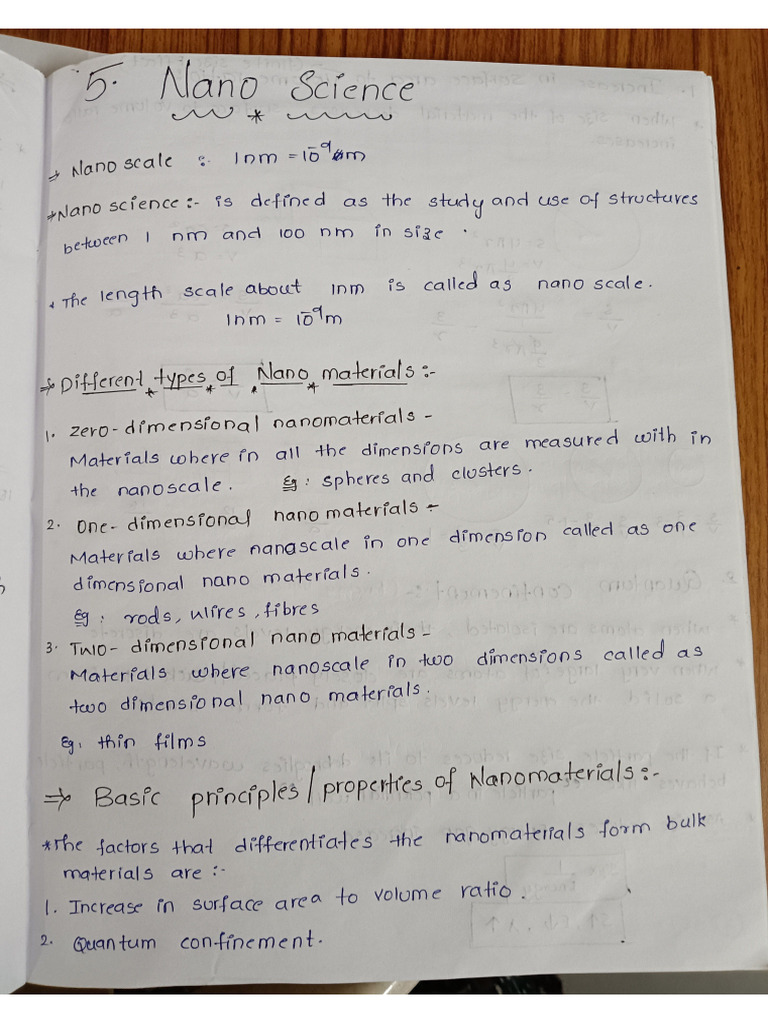 5. Nano Science
⇒ Nano scale :- 1nm = 10⁻⁹ m
*Nano science :- is defined as the study and use of structures
between 1 nm and 100 nm in size .
* The length scale about 1nm is called as nano scale.
1nm = 10⁻⁹m
⇒ Different types of Nano materials :-
1. Zero-dimensional nanomaterials -
Materials where in all the dimensions are measured with in
the nanoscale. Eg: spheres and clusters.
2. One-dimensional nano materials -
Materials where nanoscale in one dimension called as one
dimensional nano materials.
Eg: rods, wires, fibres
3. Two-dimensional nano materials -
Materials where nanoscale in two dimensions called as
two dimensional nano materials.
Eg: thin films
⇒ Basic principles/properties of Nanomaterials :-
*The factors that differentiates the nanomaterials form bulk
materials are :-
1. Increase in surface area to volume ratio.
2. Quantum confinement.